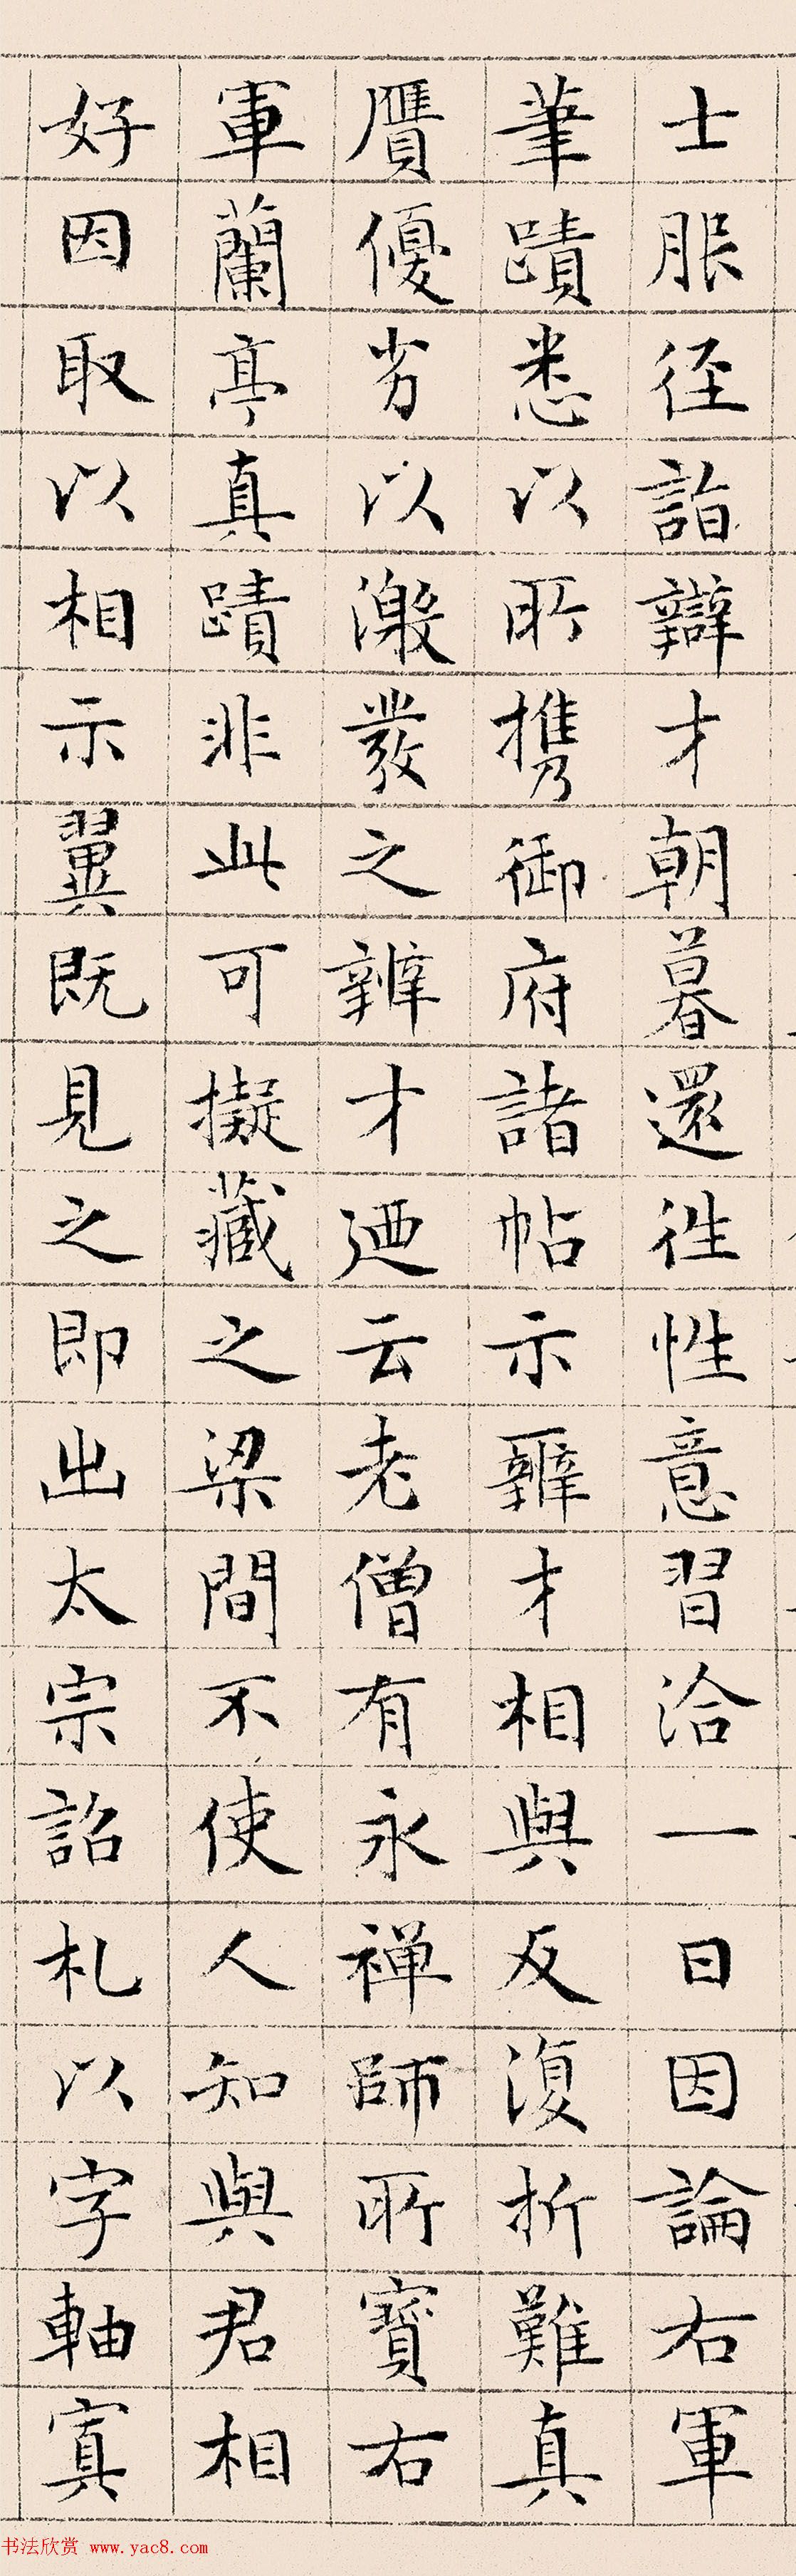 士服徑詣辯才朝暮還往性意習洽一日因論右軍
筆蹟悉以所攜御府諸帖示辯才相與反復折難真
贋優劣以激發之辨才廼云老僧有永禪師所寶右
軍蘭亭真蹟非此可擬藏之梁間不使人知與君相
好因取以相示翼既見之即出太宗詔札以字軸寘
书法欣赏 www.yac8.com